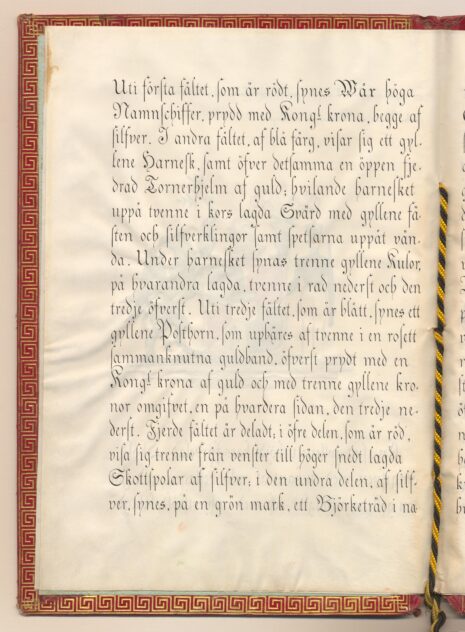 Uti första fältet, som är rödt, synes Wår höga
Namnschiffer, prydd med Kongl krona, begge af
silfver. I andra fältet, af blå färg, visar sig ett gyl-
lene Harnesk, samt öfver detsamma en öppen fje-
drad Tornerhjelm af guld; hvilande harnesket
uppå tvenne i kors lagda Svärd med gyllene fä-
sten och silfverklingor samt spetsarna uppåt vän-
da. Under harnesket synas trenne gyllene Kulor,
på hvarandra lagda, tvenne i rad nederst och den
tredje öfverst. Uti tredje fältet, som är blått, synes ett
gyllene Posthorn, som uphäres af tvenne i en rosett
sammanknutna guldband, öfverst prydt med en
Kongl krona af guld och med trenne gyllene kro-
nor omgifvet, en på hvardera sidan, den tredje ne-
derst. Fjerde fältet är deladt; i öfre delen, som är röd,
visa sig trenne från venster till höger snedt lagda
Skottspolar af silfver; i den undra delen, af silf-
ver, synes, på en grön mark, ett Björketräd i na